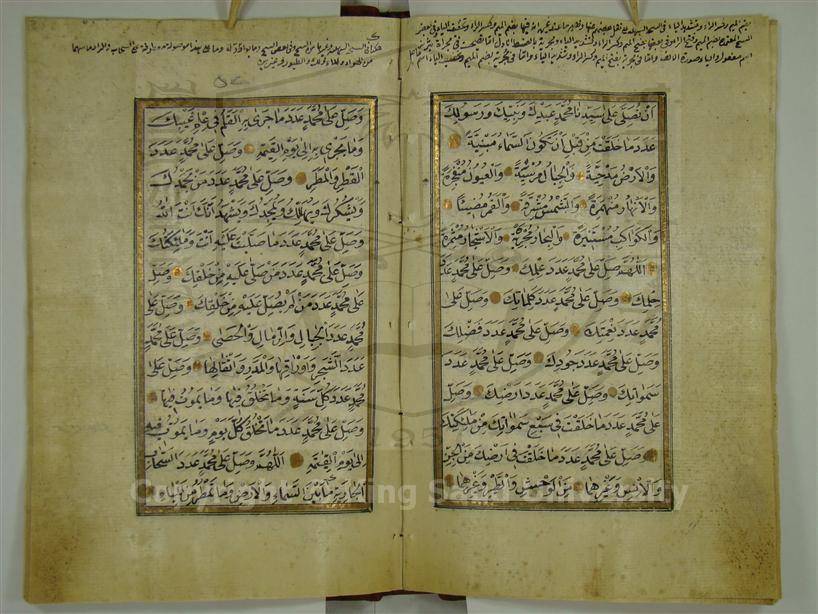 أَنْ تُصَلِّيَ عَلَى سَيِّدِنَا مُحَمَّدٍ عَبْدِكَ وَنَبِيِّكَ وَرَسُولِكَ
عَدَدَ مَا خَلَقْتَ مِنْ قَبْلِ أَنْ تَكُونَ السَّمَاءُ مَبْنِيَّةً
وَالْأَرْضُ مَدْحِيَّةً وَالْجِبَالُ مُرْسِيَةً وَالْعُيُونُ مُنْفَجِرَةً
وَالْأَنْهَارُ مُنْهَمِرَةً وَالشَّمْسُ مُشْرِقَةً وَالْقَمَرُ مُضِيئًا
وَالْكَوَاكِبُ مُسْتَنِيرَةً وَالْبِحَارُ مُجْرِيَةً وَالْأَشْجَارُ مُثْمِرَةً
اللَّهُمَّ صَلِّ عَلَى مُحَمَّدٍ عَدَدَ عِلْمِكَ وَصَلِّ عَلَى مُحَمَّدٍ عَدَدَ
حِلْمِكَ وَصَلِّ عَلَى مُحَمَّدٍ عَدَدَ كَلِمَاتِكَ وَصَلِّ عَلَى
مُحَمَّدٍ عَدَدَ نِعْمَتِكَ وَصَلِّ عَلَى مُحَمَّدٍ عَدَدَ فَضْلِكَ
وَصَلِّ عَلَى مُحَمَّدٍ عَدَدَ جُودِكَ وَصَلِّ عَلَى مُحَمَّدٍ عَدَدَ
سَمٰوَاتِكَ وَصَلِّ عَلَى مُحَمَّدٍ عَدَدَ أَرْضِكَ وَصَلِّ
عَلَى مُحَمَّدٍ عَدَدَ مَا خَلَقْتَ فِي سَبْعِ سَمٰوَاتِكَ مِنْ مَلٰئِكَتِكَ
وَصَلِّ عَلَى مُحَمَّدٍ عَدَدَ مَا خَلَقْتَ فِي أَرْضِكَ مِنَ الْجِنِّ
وَالْأِنْسِ وَغَيْرِهِمَا مِنَ الْوَحْشِ وَالطَّيْرِ وَغَيْرِهِمَا
وَصَلِّ عَلَى مُحَمَّدٍ عَدَدَ مَا جَرَى بِهِ الْقَلَمُ فِي عِلْمِ غَيْبِكَ
وَمَا يَجْرِي بِهِ إِلَى يَوْمِ الْقِيٰمَةِ وَصَلِّ عَلَى مُحَمَّدٍ عَدَدَ
الْقَطْرِ وَالْمَطَرِ وَصَلِّ عَلَى مُحَمَّدٍ عَدَدَ مَنْ يَحْمَدُكَ
وَيَشْكُرُكَ وَيُهَلِّلُكَ وَيُمَجِّدُكَ وَيَشْهَدُ أَنَّكَ أَنْتَ اللَّهُ
وَصَلِّ عَلَى مُحَمَّدٍ عَدَدَ مَا صَلَّيْتَ عَلَيْهِ أَنْتَ وَمَلٰئِكَتُكَ
وَصَلِّ عَلَى مُحَمَّدٍ عَدَدَ مَنْ صَلَّى عَلَيْهِ مِنْ خَلْقِكَ وَصَلِّ
عَلَى مُحَمَّدٍ عَدَدَ مَنْ لَمْ يُصَلِّ عَلَيْهِ مِنْ خَلْقِكَ وَصَلِّ عَلَى
مُحَمَّدٍ عَدَدَ الْجِبَالِ وَالرِّمَالِ وَالْحَصَى وَصَلِّ عَلَى مُحَمَّدٍ
عَدَدَ الشَّجَرِ وَأَوْرَاقِهَا وَالْمَدَرِ وَأَثْقَالِهَا وَصَلِّ عَلَى
مُحَمَّدٍ عَدَدَ كُلِّ سَنَةٍ وَمَا يَخْلُقُ فِيهَا وَمَا يَمُوتُ فِيهَا
وَصَلِّ عَلَى مُحَمَّدٍ عَدَدَ مَا يَخْلُقُ كُلَّ يَوْمٍ وَمَا يَمُوتُ فِيهِ
إِلَى يَوْمِ الْقِيٰمَةِ اللَّهُمَّ وَصَلِّ عَلَى مُحَمَّدٍ عَدَدَ السَّحَابِ
الْجَارِيَةِ مَا بَيْنَ السَّمَاءِ وَالْأَرْضِ وَمَا تَمْطُرُ مِنَ الْمِيَاهِ
Copyright © King Saud University